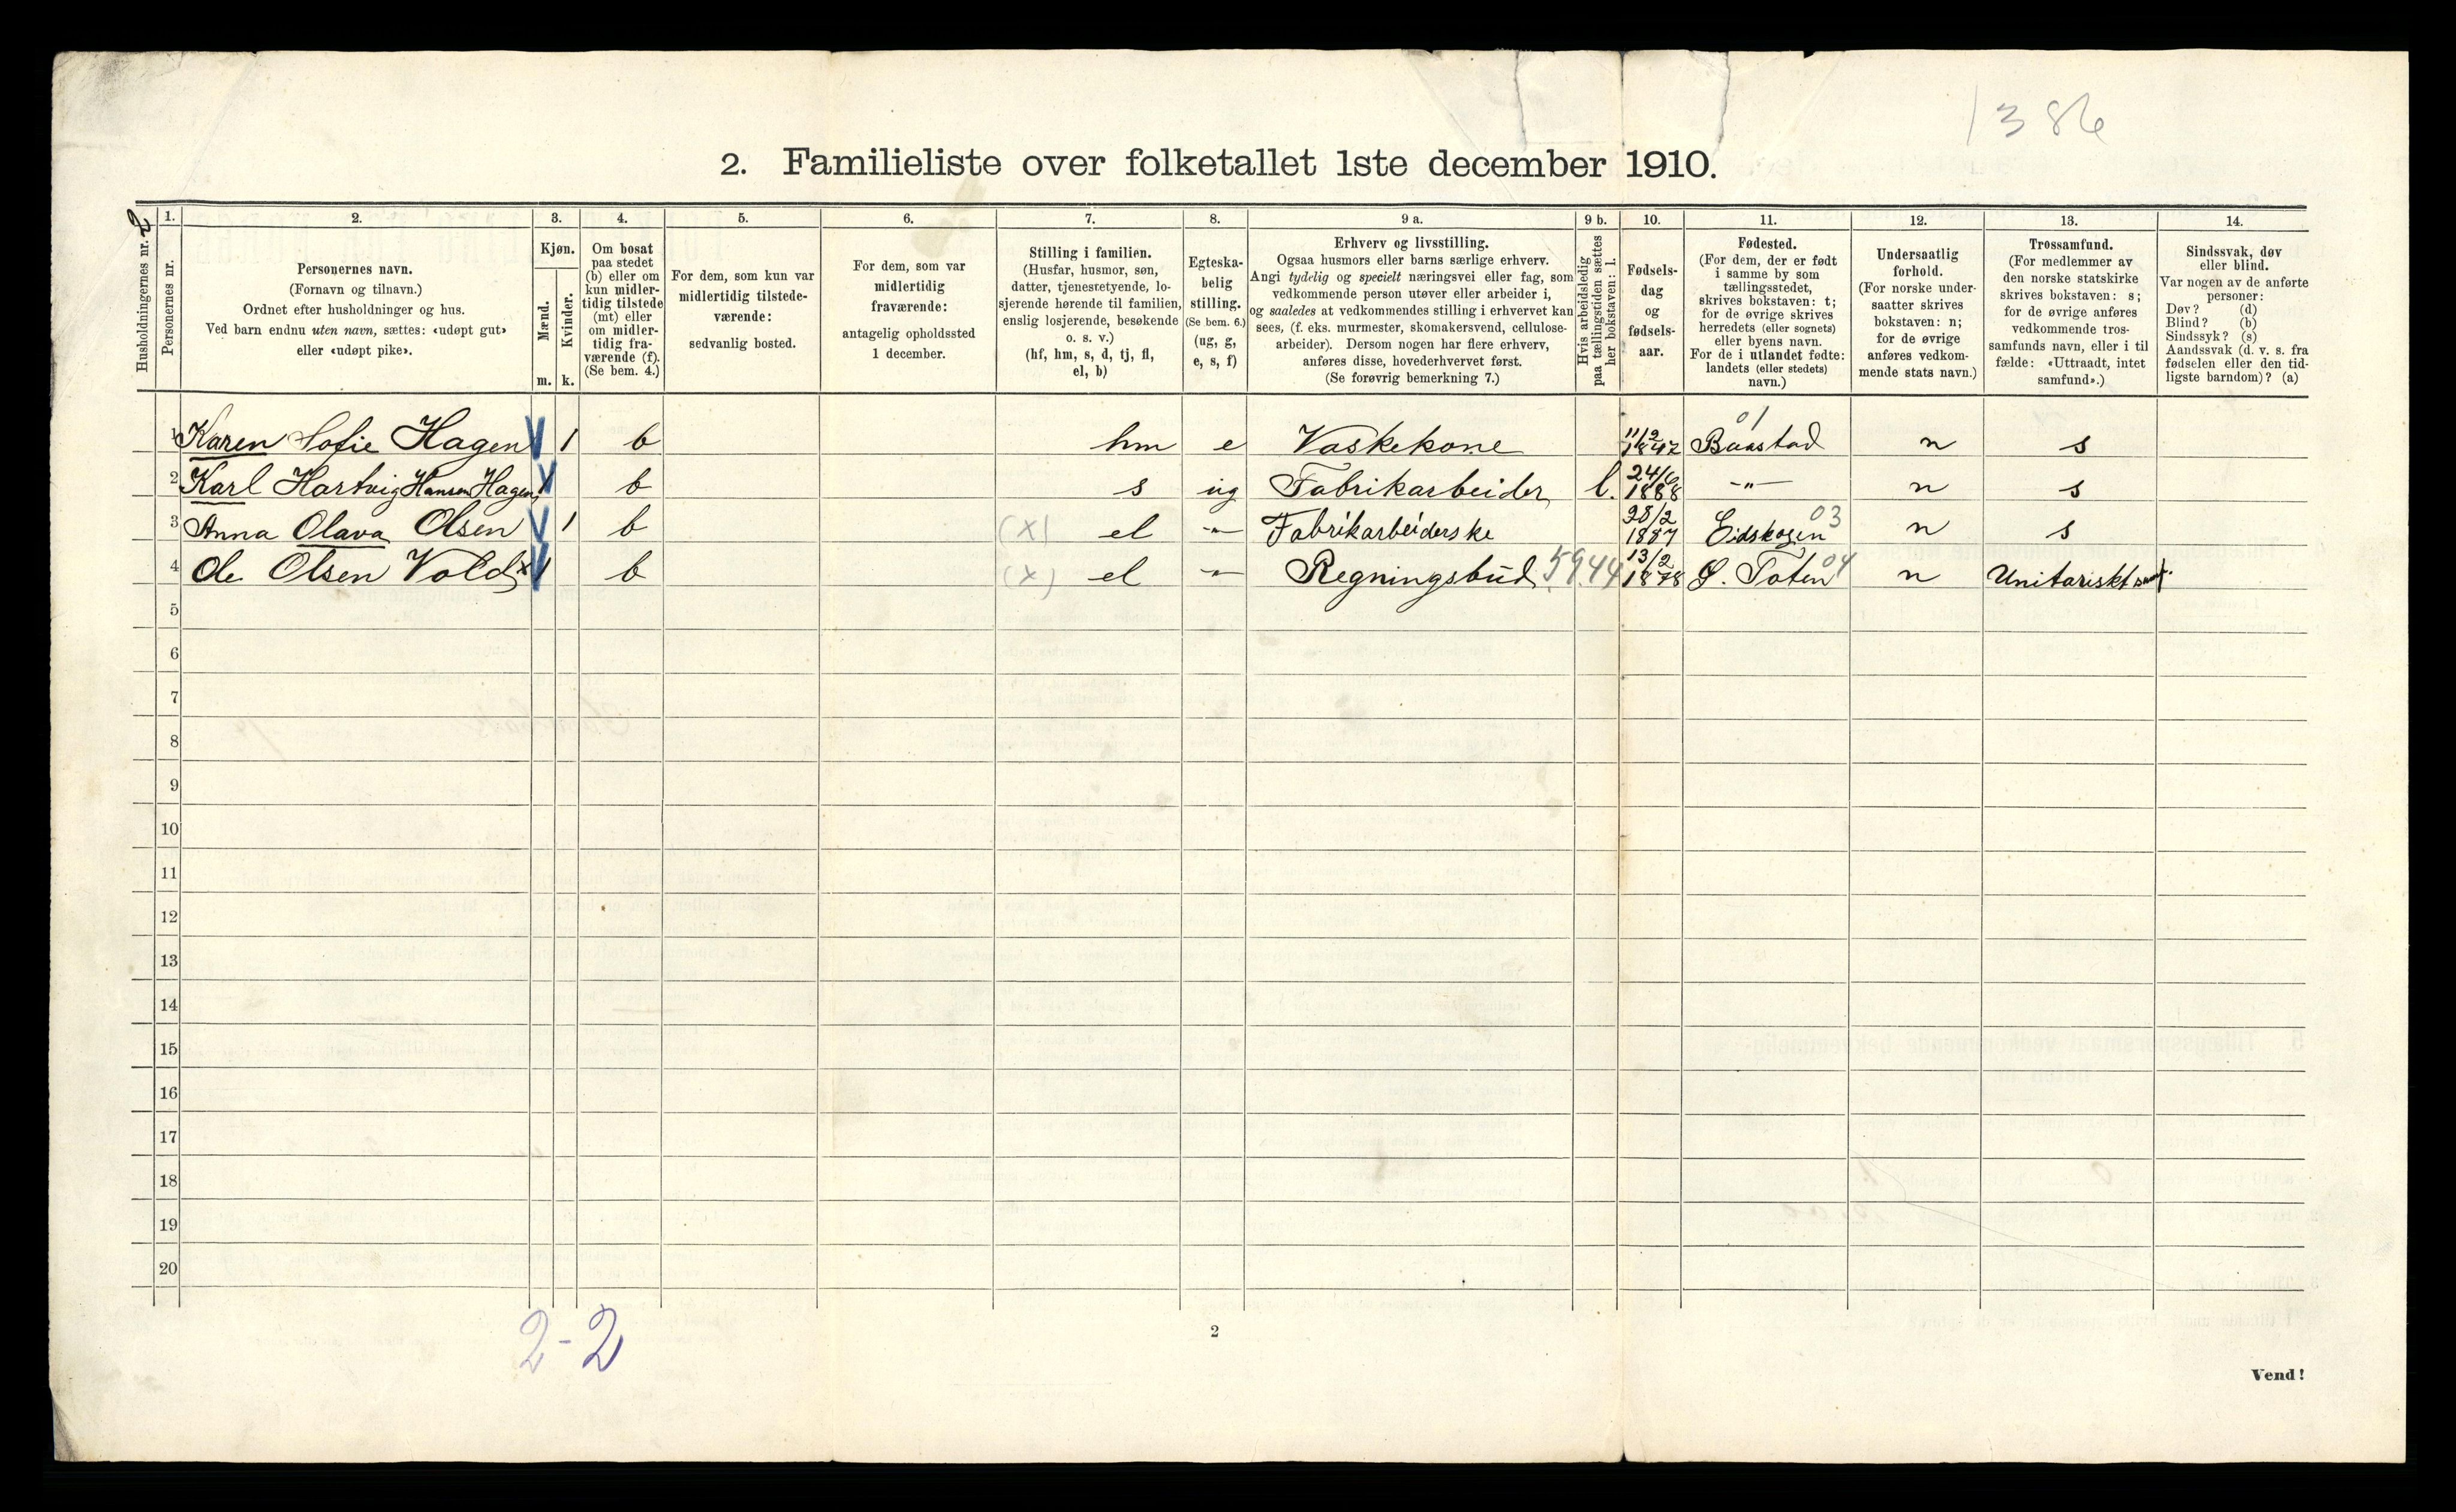 1386
2. Familieliste over folketallet 1ste december 1910.
Husholdningernes nr. 2
1. Personernes nr.
2. Personernes navn. (Fornavn og tilnavn.) Ordnet efter husholdninger og hus. Ved barn endnu uten navn, sættes: «udøpt gut» eller «udøpt pike».
3. Kjøn. Mænd. m. Kvinder. k.
4. Om bosat paa stedet (b) eller om kun midlertidig tilstede (mt) eller om midlertidig fraværende (f). (Se bem. 4.)
5. For dem, som kun var midlertidig tilstedeværende: sedvanlig bosted.
6. For dem, som var midlertidig fraværende: antagelig opholdssted 1 december.
7. Stilling i familien. (Husfar, husmor, søn, datter, tjenestetyende, losjerende hørende til familien, enslig losjerende, besøkende o. s. v.) (hf, hm, s, d, tj, fl, el, b)
8. Egteskabelig stilling. (Se bem. 6.) (ug, g, e, s, f)
9 a. Erhverv og livsstilling. Ogsaa husmors eller barns særlige erhverv. Angi tydelig og specielt næringsvei eller fag, som vedkommende person utøver eller arbeider i, og saaledes at vedkommendes stilling i erhvervet kan sees, (f. eks. murmester, skomakersvend, cellulosearbeider). Dersom nogen har flere erhverv, anføres disse, hovederhvervet først. (Se forøvrig bemerkning 7.)
9 b. Hvis arbeidsledig paa tællingstiden sættes her bokstaven: l.
10. Fødselsdag og fødselsaar.
11. Fødested. (For dem, der er født i samme by som tællingsstedet, skrives bokstaven: t; for de øvrige skrives herredets (eller sognets) eller byens navn. For de i utlandet fødte: landets (eller stedets) navn.)
12. Undersaatlig forhold. (For norske undersaatter skrives bokstaven: n; for de øvrige anføres vedkommende stats navn.)
13. Trossamfund. (For medlemmer av den norske statskirke skrives bokstaven: s; for de øvrige anføres vedkommende trossamfunds navn, eller i tilfælde: «Uttraadt, intet samfund».)
14. Sindssvak, døv eller blind. Var nogen av de anførte personer: Døv? (d) Blind? (b) Sindssyk? (s) Aandssvak (d. v. s. fra fødselen eller den tidligste barndom)? (a)
1 Karen Sofie Hagen 1 b hm e Vaskekone 11/2 1842 Baastad 01 n s
2 Karl Hartvig Hansen Hagen 1 b s ug Fabrikarbeider l. 24/6 1888 -"- n s
3 Anna Olava Olsen 1 b (x) el -"- Fabrikarbeiderske 28/2 1887 Eidskogen 03 n s
4 Ole Olsen Vold x 1 b (x) el -"- Regningsbud 5944 13/2 1878 Ø. Toten 04 n Unitariskt samf.
5
6
7
8
9
10
11
12
13
14
15
16
17
18
19
20
2-2
2
Vend!